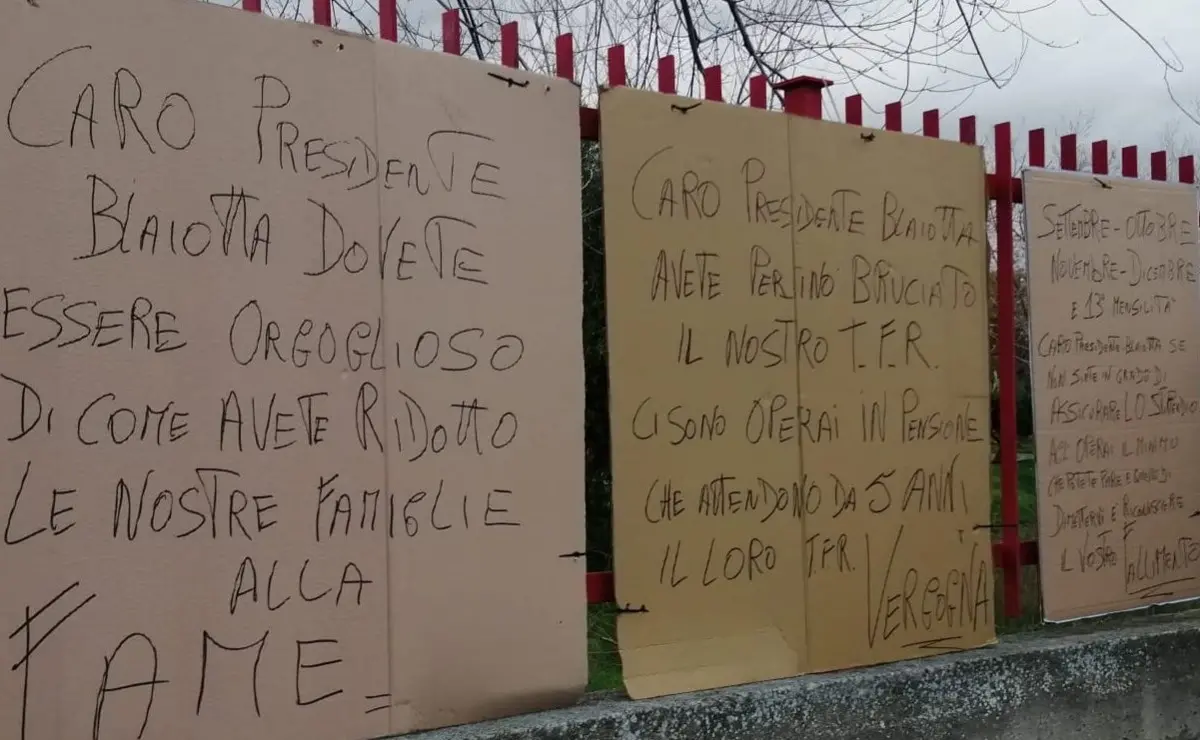 CARO PRESIDENTE
BLAIOTTA DOVETE
ESSERE ORGOGLIOSO
DI COME AVETE RIDOTTO
LE NOSTRE FAMIGLIE
ALLA
FAME
CARO PRESIDENTE BLAIOTTA
AVETE PERSINO BRUCIATO
IL NOSTRO T.F.R.
CI SONO OPERAI IN PENSIONE
CHE ATTENDONO DA 5 ANNI
IL LORO T.F.R. VERGOGNA
SETTEMBRE - OTTOBRE
NOVEMBRE - DICEMBRE
E 13ª MENSILITÀ
CARO PRESIDENTE BLAIOTTA SE
NON SIETE IN GRADO DI
ASSICURARE LO STIPENDIO
AGLI OPERAI IL MINIMO
CHE POTETE FARE E QUELLO DI
DIMETTERVI E RICONOSCERE
IL VOSTRO FALLIMENTO